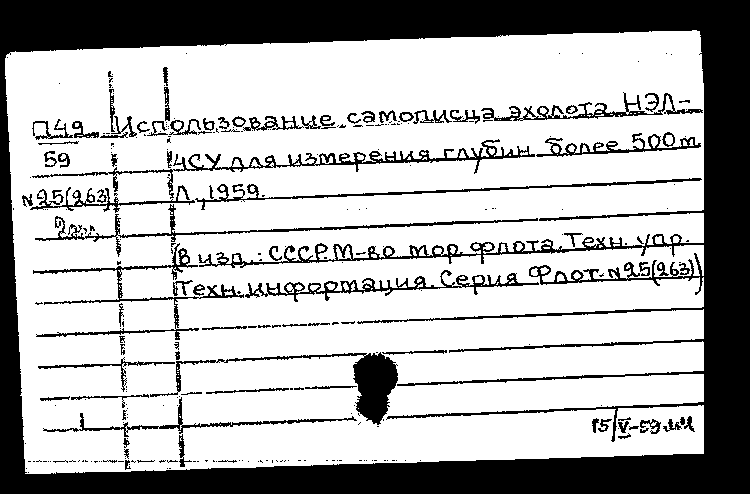 П49 Использование самописца эхолота НЭЛ-
59 4СУ для измерения глубин более 500 м
Л., 1959.
№25(263)
(В изд.: СССР. М-во мор. флота. Техн. упр.
Техн. информация. Серия Флот. №25(263))
1
15/V-59